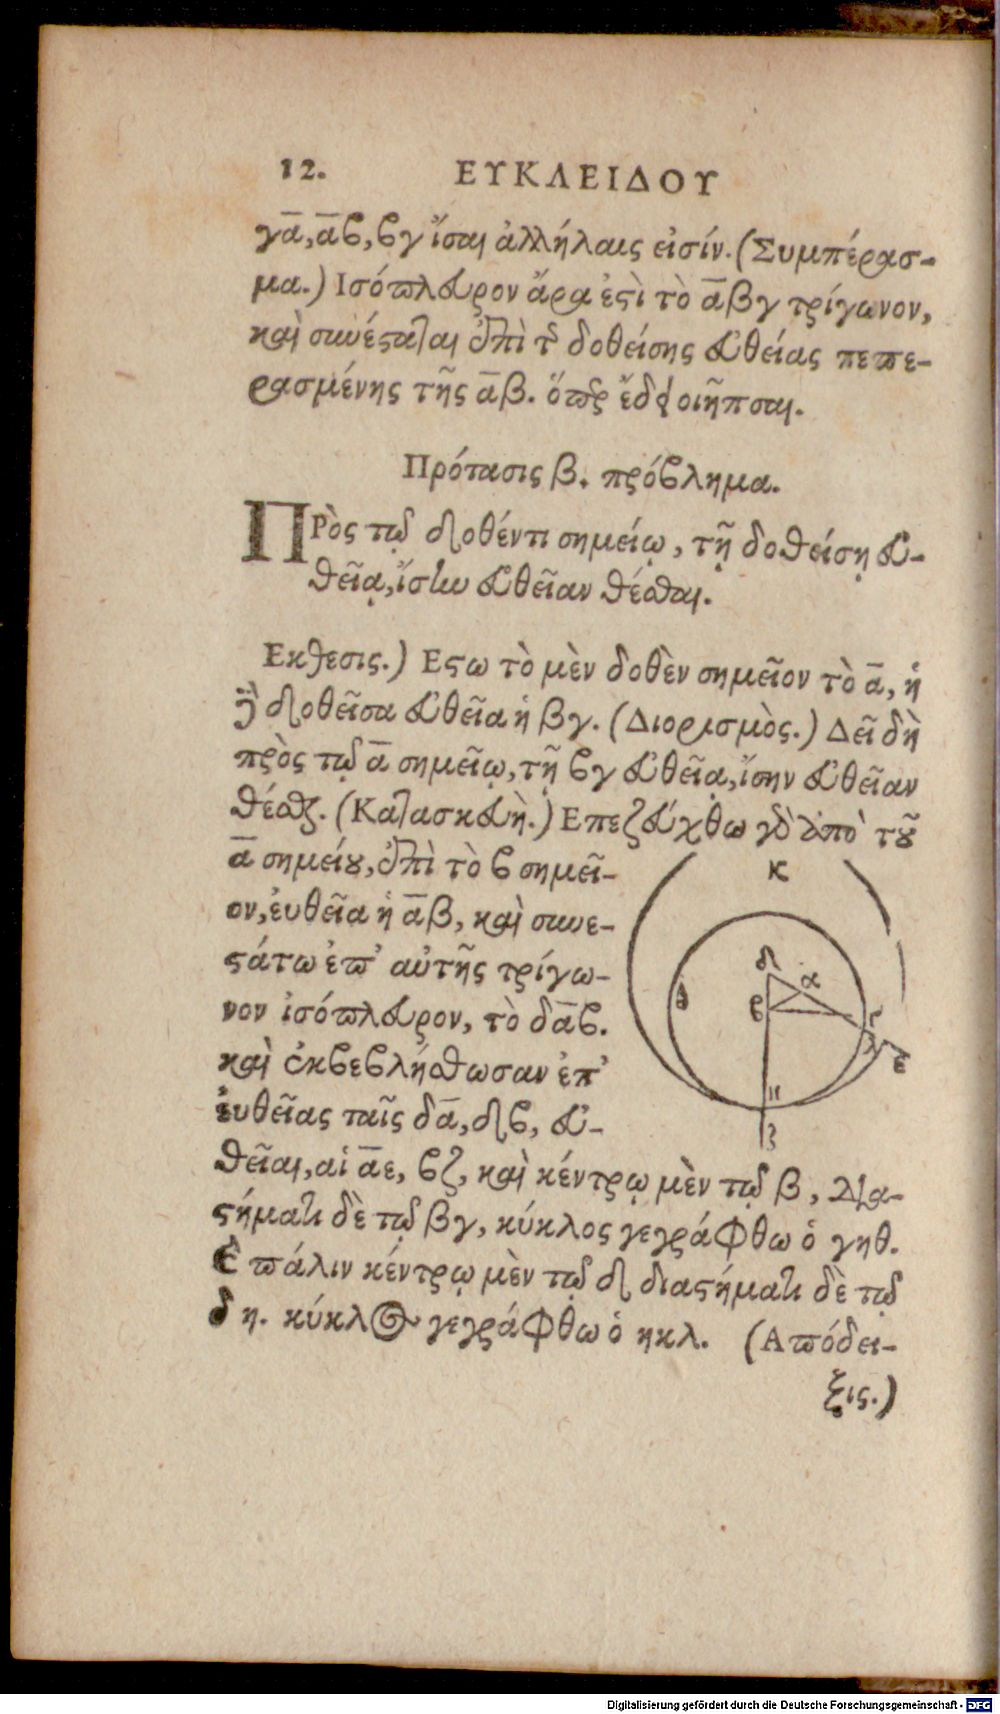 12. ΕΥΚΛΕΙΔΟΥ
γα̅, α̅β, βγ ἴσαι ἀλλήλαις εἰσίν. (Συμπέρασ-
μα.) Ισόπλευρον ἄρα ἐστὶ τὸ α̅βγ τρίγωνον,
καὶ συνέσταται ἐπὶ τῆς δοθείσης εὐθείας πεπε-
ρασμένης τῆς α̅β. ὅπερ ἔδει ποιῆσαι.
Πρότασις β. πρόβλημα.
ΠΡὸς τῷ δοθέντι σημείῳ, τῇ δοθείσῃ εὐ-
θεῖᾳ, ἴσην εὐθεῖαν θέσθαι.
Εκθεσις.) Εστω τὸ μὲν δοθὲν σημεῖον τὸ α̅, ἡ
δὲ δοθεῖσα εὐθεῖα ἡ βγ. (Διορισμὸς.) Δεῖ δὴ
πρὸς τῷ α̅ σημεῖῳ, τῇ βγ εὐθεῖᾳ, ἴσην εὐθεῖαν
θέσθαι. (Κατασκευὴ.) Επεζεύχθω γὸ ἀπὸ τοῦ
α̅ σημείου, ἐπὶ τὸ β σημεῖ-
ον, ἐυθεῖα ἡ α̅β, καὶ συνε-
στάτω ἐπ' αὐτῆς τρίγω-
νον ἰσόπλευρον, τὸ δα̅β.
καὶ ἐκβεβλήσθωσαν ἐπ'
ἐυθεῖας ταῖς δα̅, δβ, εὐ-
θεῖαι, αἱ α̅ε, βζ, καὶ κέντρῳ μὲν τῷ β, δια-
στήματι δὲ τῷ βγ, κύκλος γεγράφθω ὁ γηθ.
καὶ πάλιν κέντρῳ μὲν τῷ δ διαστήματι δὲ τῷ
δη. κύκλος γεγράφθω ὁ ηκλ. (Απόδει-
ξις.)
κ
δ
α
θ
β
γ
λ
ε
η
ζ
Digitalisierung gefördert durch die Deutsche Forschungsgemeinschaft - DFG